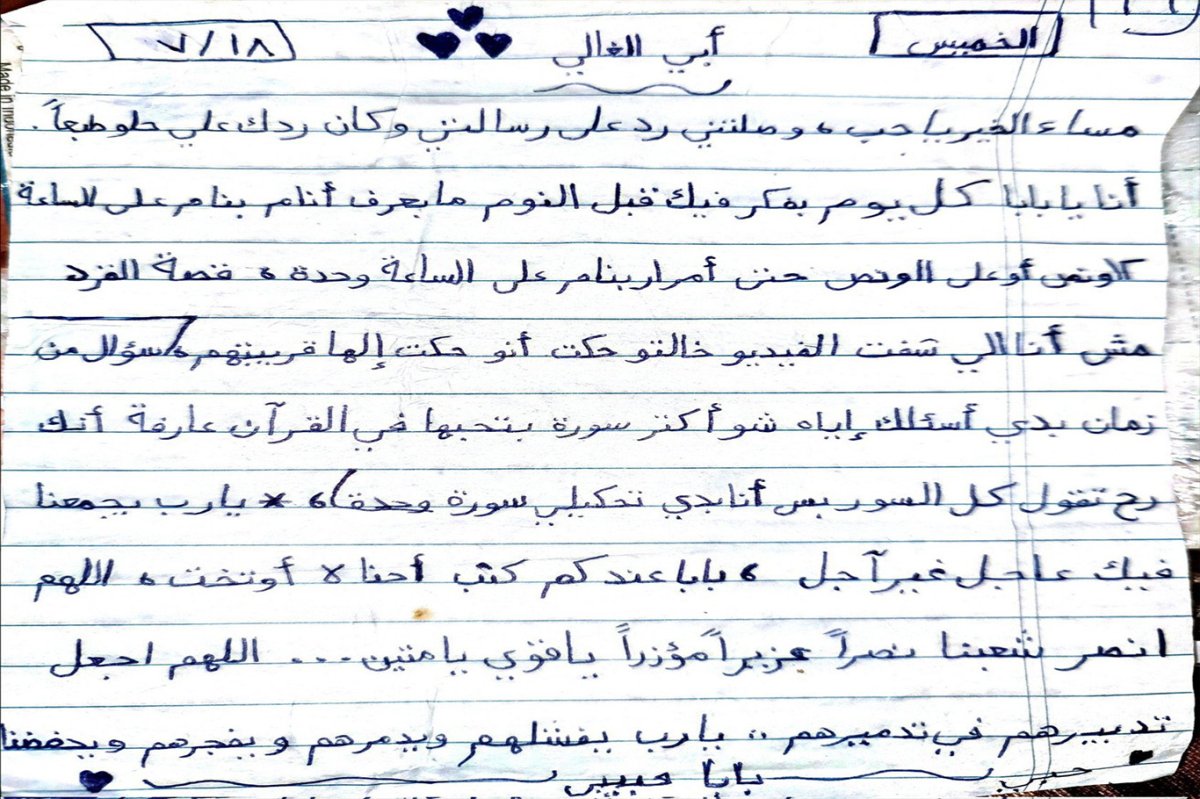 الخميس
أبي الغالي
٧/١٨
مساء الخير يا حب، وصلتني رد على رسالتي وكان ردك علي حلو طبعاً.
أنا يا بابا كل يوم بفكر فيك قبل النوم ما بعرف أنام بنام على الساعة
الونص أو على الونص حتى أمرار بنام على الساعة وحدة، قصة القرد
مش أنا الي شفت الفيديو خالتو حكت أنو حكت إلها قريبتهم، سؤال من
زمان بدي أسئلك إياه شو أكثر سورة بتحبها في القرآن عارفة أنك
رح تقول كل السور بس أنا بدي تحكيلي سورة وحدة)، * يارب يجمعنا
فيك عاجل غير آجل، بابا عندكم كتب أحنا لا أو تخت، اللهم
انصر شعبنا نصراً عزيزاً مؤزراً يا قوي يا متين... اللهم اجعل
تدبيرهم في تدميرهم.. يارب يفشلهم ويدمرهم ويفجرهم ويحفضنا
بابا حبيبي
Made in